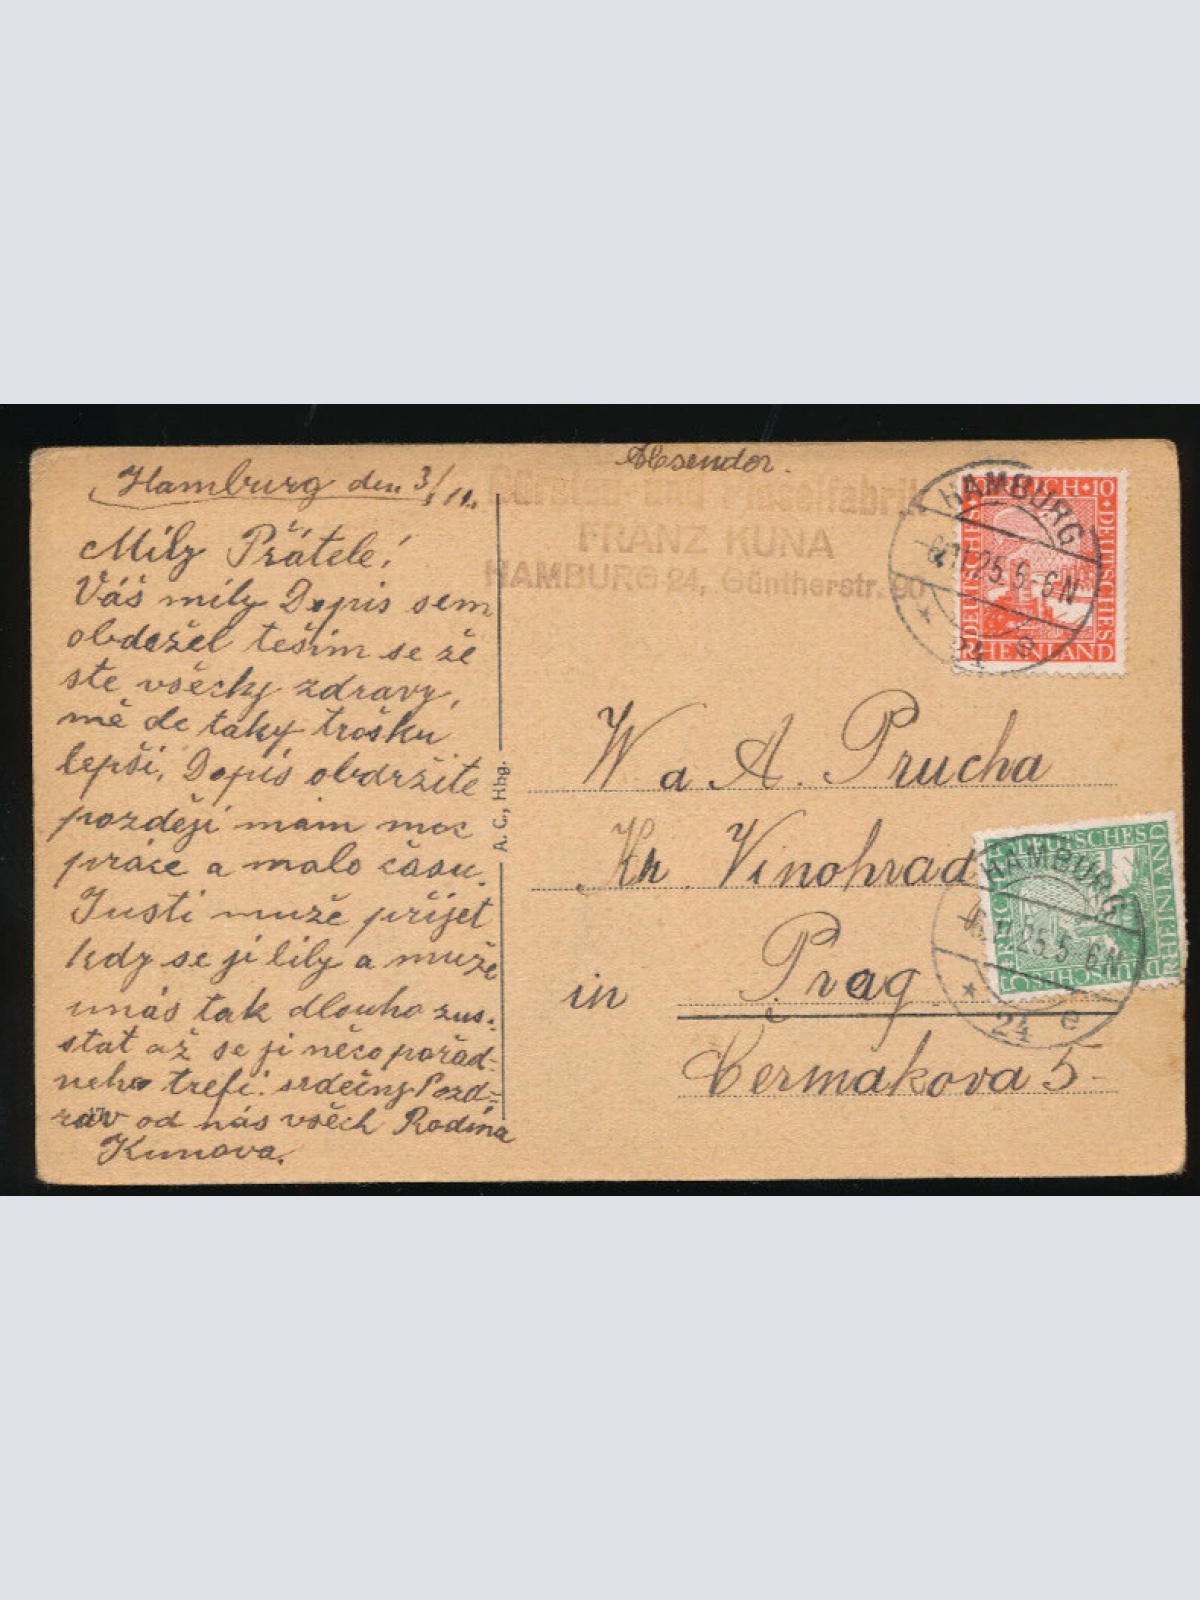 Hamburg den 3/11.
Mily Přátelé!
Váš mily Dopis sem
obdežel tešim se žē
ste všecky zdravy,
mě de taky trošku
lepši, Dopis obdržite
pozdēji mam moc
práce a malo času.
Justi muže přijet
kdy se ji liby a muže
unás tak dlouho zus-
stat až se ji něco pořad-
neho trefi. srdečny Pozd-
rav od nás všech Rodina
Kunova.
A. C., Hbg.
Absendor.
FRANZ KUNA
HAMBURG 24, Güntherstr. 90
DEUTSCHES REICH 10 DEUTSCHES
RHEINLAND
HAMBURG
6.11.25.5-6N
* 24 e
W a A. Prucha
Kr. Vinohrad
in Prag
Cermakova 5-
DEUTSCHES
RHEINLAND
DEUTSCHES
REICH
5
HAMBURG
6.11.25.5-6N
* 24 e